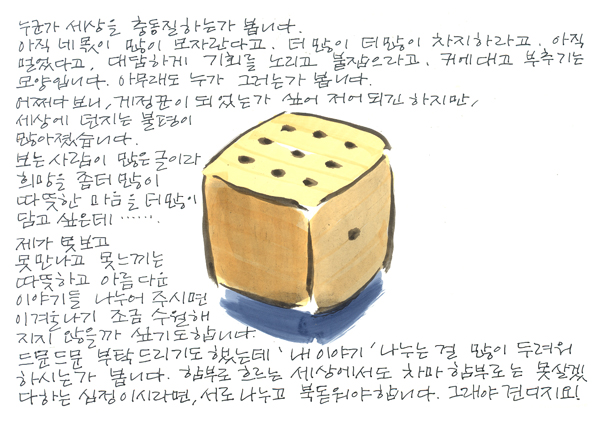 누군가 세상을 충동질하는가 봅니다.
아직 네 몫이 많이 모자란다고. 더 많이 더 많이 차지하라고. 아직
멀었다고, 대담하게 기회를 노리고 붙잡으라고, 귀에 대고 부추기는
모양입니다. 아무래도 누가 그러는가 봅니다.
어쩌다보니, 게정꾼이 되었는가 싶어 저어되긴 하지만,
세상에 던지는 불평이
많아졌습니다.
보는 사람이 많은 글이라
희망을 좀더 많이
따뜻한 마음을 더 많이
담고 싶은데 ……
제가 못보고
못 만나고 못느끼는
따뜻하고 아름다운
이야기들 나누어 주시면
이겨울나기 조금 수월해
지지 않을까 싶기도합니다.
드문드문 부탁드리기도 했는데 '내 이야기' 나누는 걸 많이 두려워
하시는가 봅니다. 함부로 흐르는 세상에서도 차마 함부로는 못살겠
다하는 심정이시라면, 서로 나누고 북돋워야합니다. 그래야 견디지요!